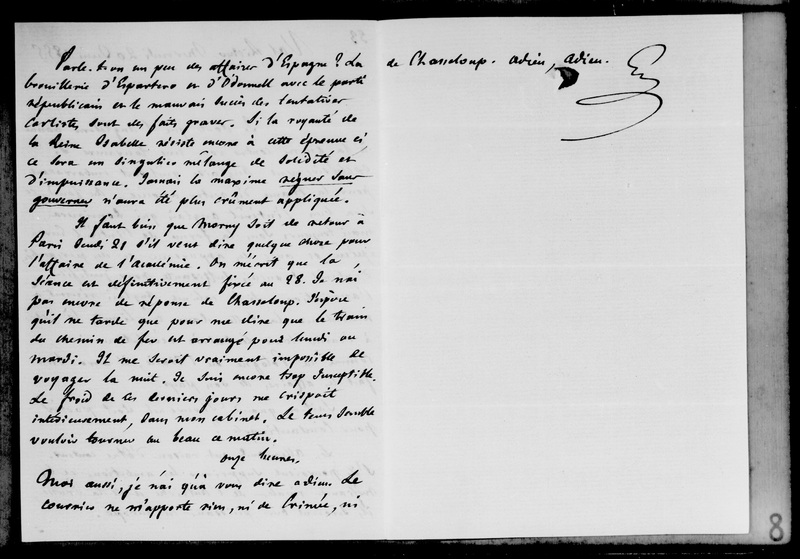 Parle-t-on un peu des affaires d'Espagne ? La
brouillerie d'Espartero et d'Odonnell avec le parti
républicain et le mauvais succès des tentatives
carlistes sont des faits graves. Si la royauté de
la Reine Isabelle résiste encore à cette épreuve ci
ce sera un singulier mélange de solidité et
d'impuissance. Jamais la maxime régner sans
gouverner n'aura été plus crûment appliquée.
Il faut bien que Morny soit de retour à
Paris Jeudi 21 s'il veut dire quelque chose pour
l'affaire de l'Académie. On m'écrit que la
séance est définitivement fixée au 28. Je n'ai
pas encore de réponse de Chasseloup. J'espère
qu'il ne tarde que pour me dire que le train
du chemin de fer est arrangé pour lundi ou
mardi. Il me seroit vraiment impossible de
voyager la nuit. Je suis encore trop susceptible.
Le froid de ces derniers jours me crispoit
intérieurement, dans mon cabinet. Le tems semble
vouloir tourner au beau ce matin.
onze heures.
Moi aussi, je n'ai qu'à vous dire adieu. Le
courrier ne m'apporte rien, ni de Crimée, ni
de Chasseloup. adieu, adieu.
8